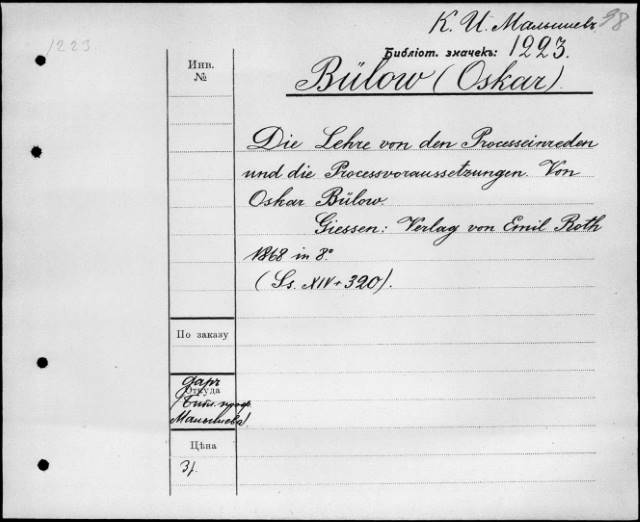 1223.
К. И. Малышевъ 98
Библіот. значекъ: 1223.
Инв.
№
Bülow (Oskar).
Die Lehre von den Processeinreden
und die Processvoraussetzungen. Von
Oskar Bülow.
Giessen: Verlag von Emil Roth
1868 in 8°
(Ss. XIV + 320).
По заказу
Откуда
даръ
(Библ. проф.
Малышева)
Цѣна